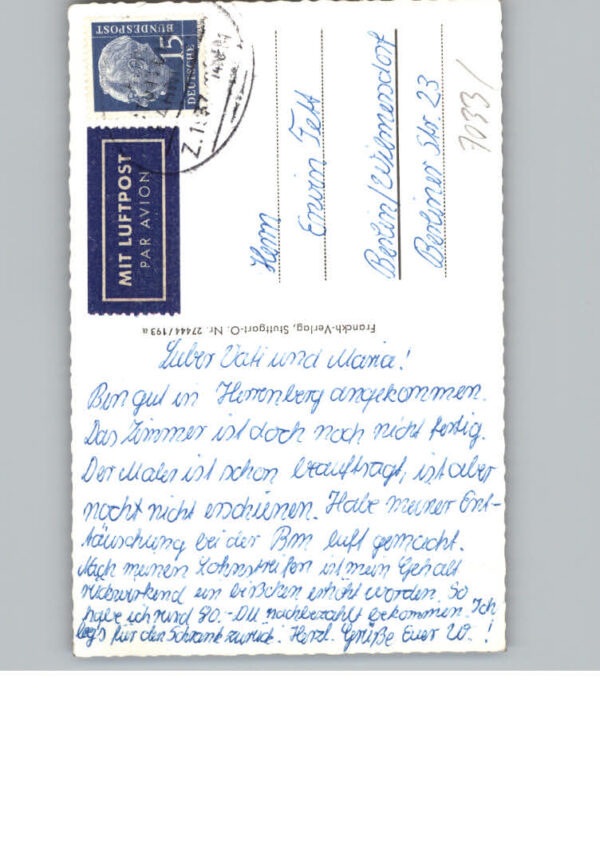 DEUTSCHE
BUNDESPOST
15
MIT LUFTPOST
PAR AVION
Herrn
Erwin Tett
Berlin/Wilmersdorf
Berliner Str 23
7033/
Franckh-Verlag, Stuttgart-O. Nr. 27444/193a
Lieber Vati und Maria!
Bin gut in Herrenberg angekommen.
Das Zimmer ist doch noch nicht fertig.
Der Maler ist schon beauftragt, ist aber
nocht nicht erschienen. Habe meiner Ent-
täuschung bei der Bm luft gemacht.
Nach meinen Lohnstreifen ist mein Gehalt
rückwirkend ein bißchen erhöht worden. So
habe ich rund 80.-DM nachbezahlt bekommen. Ich
leg's für den Schrank zurück. Herzl. Grüße Euer W.!